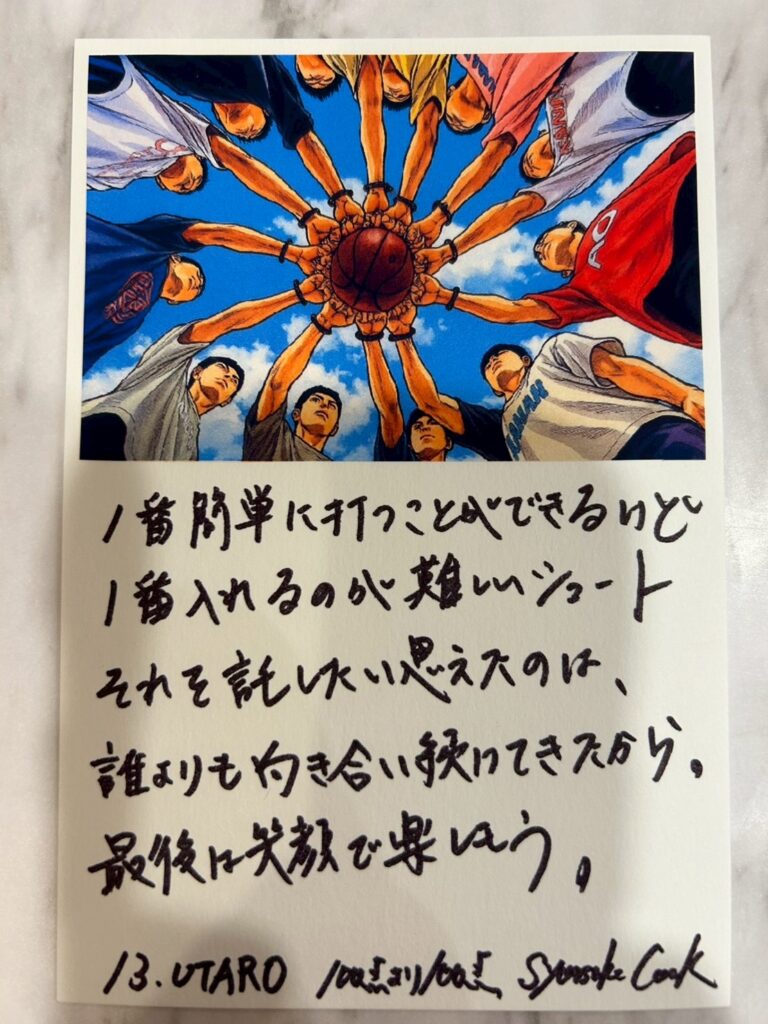 1番簡単に打つことができるけど
1番入れるのが難しいシュート
それを託したい思えたのは、
誰よりも向き合い続けてきたから。
最後は笑顔で楽しもう。
13. UTARO 100点より100点 Syunsuke Cook